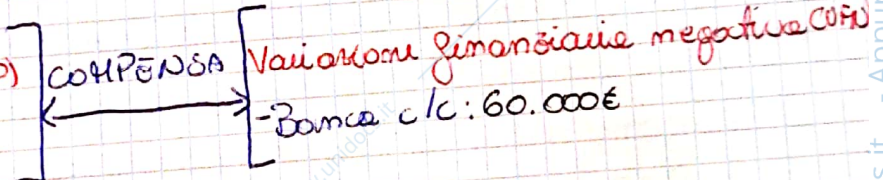 COMPENSA
Variazione finanziaria negativa (VFN)
- Banca c/c: 60.000€